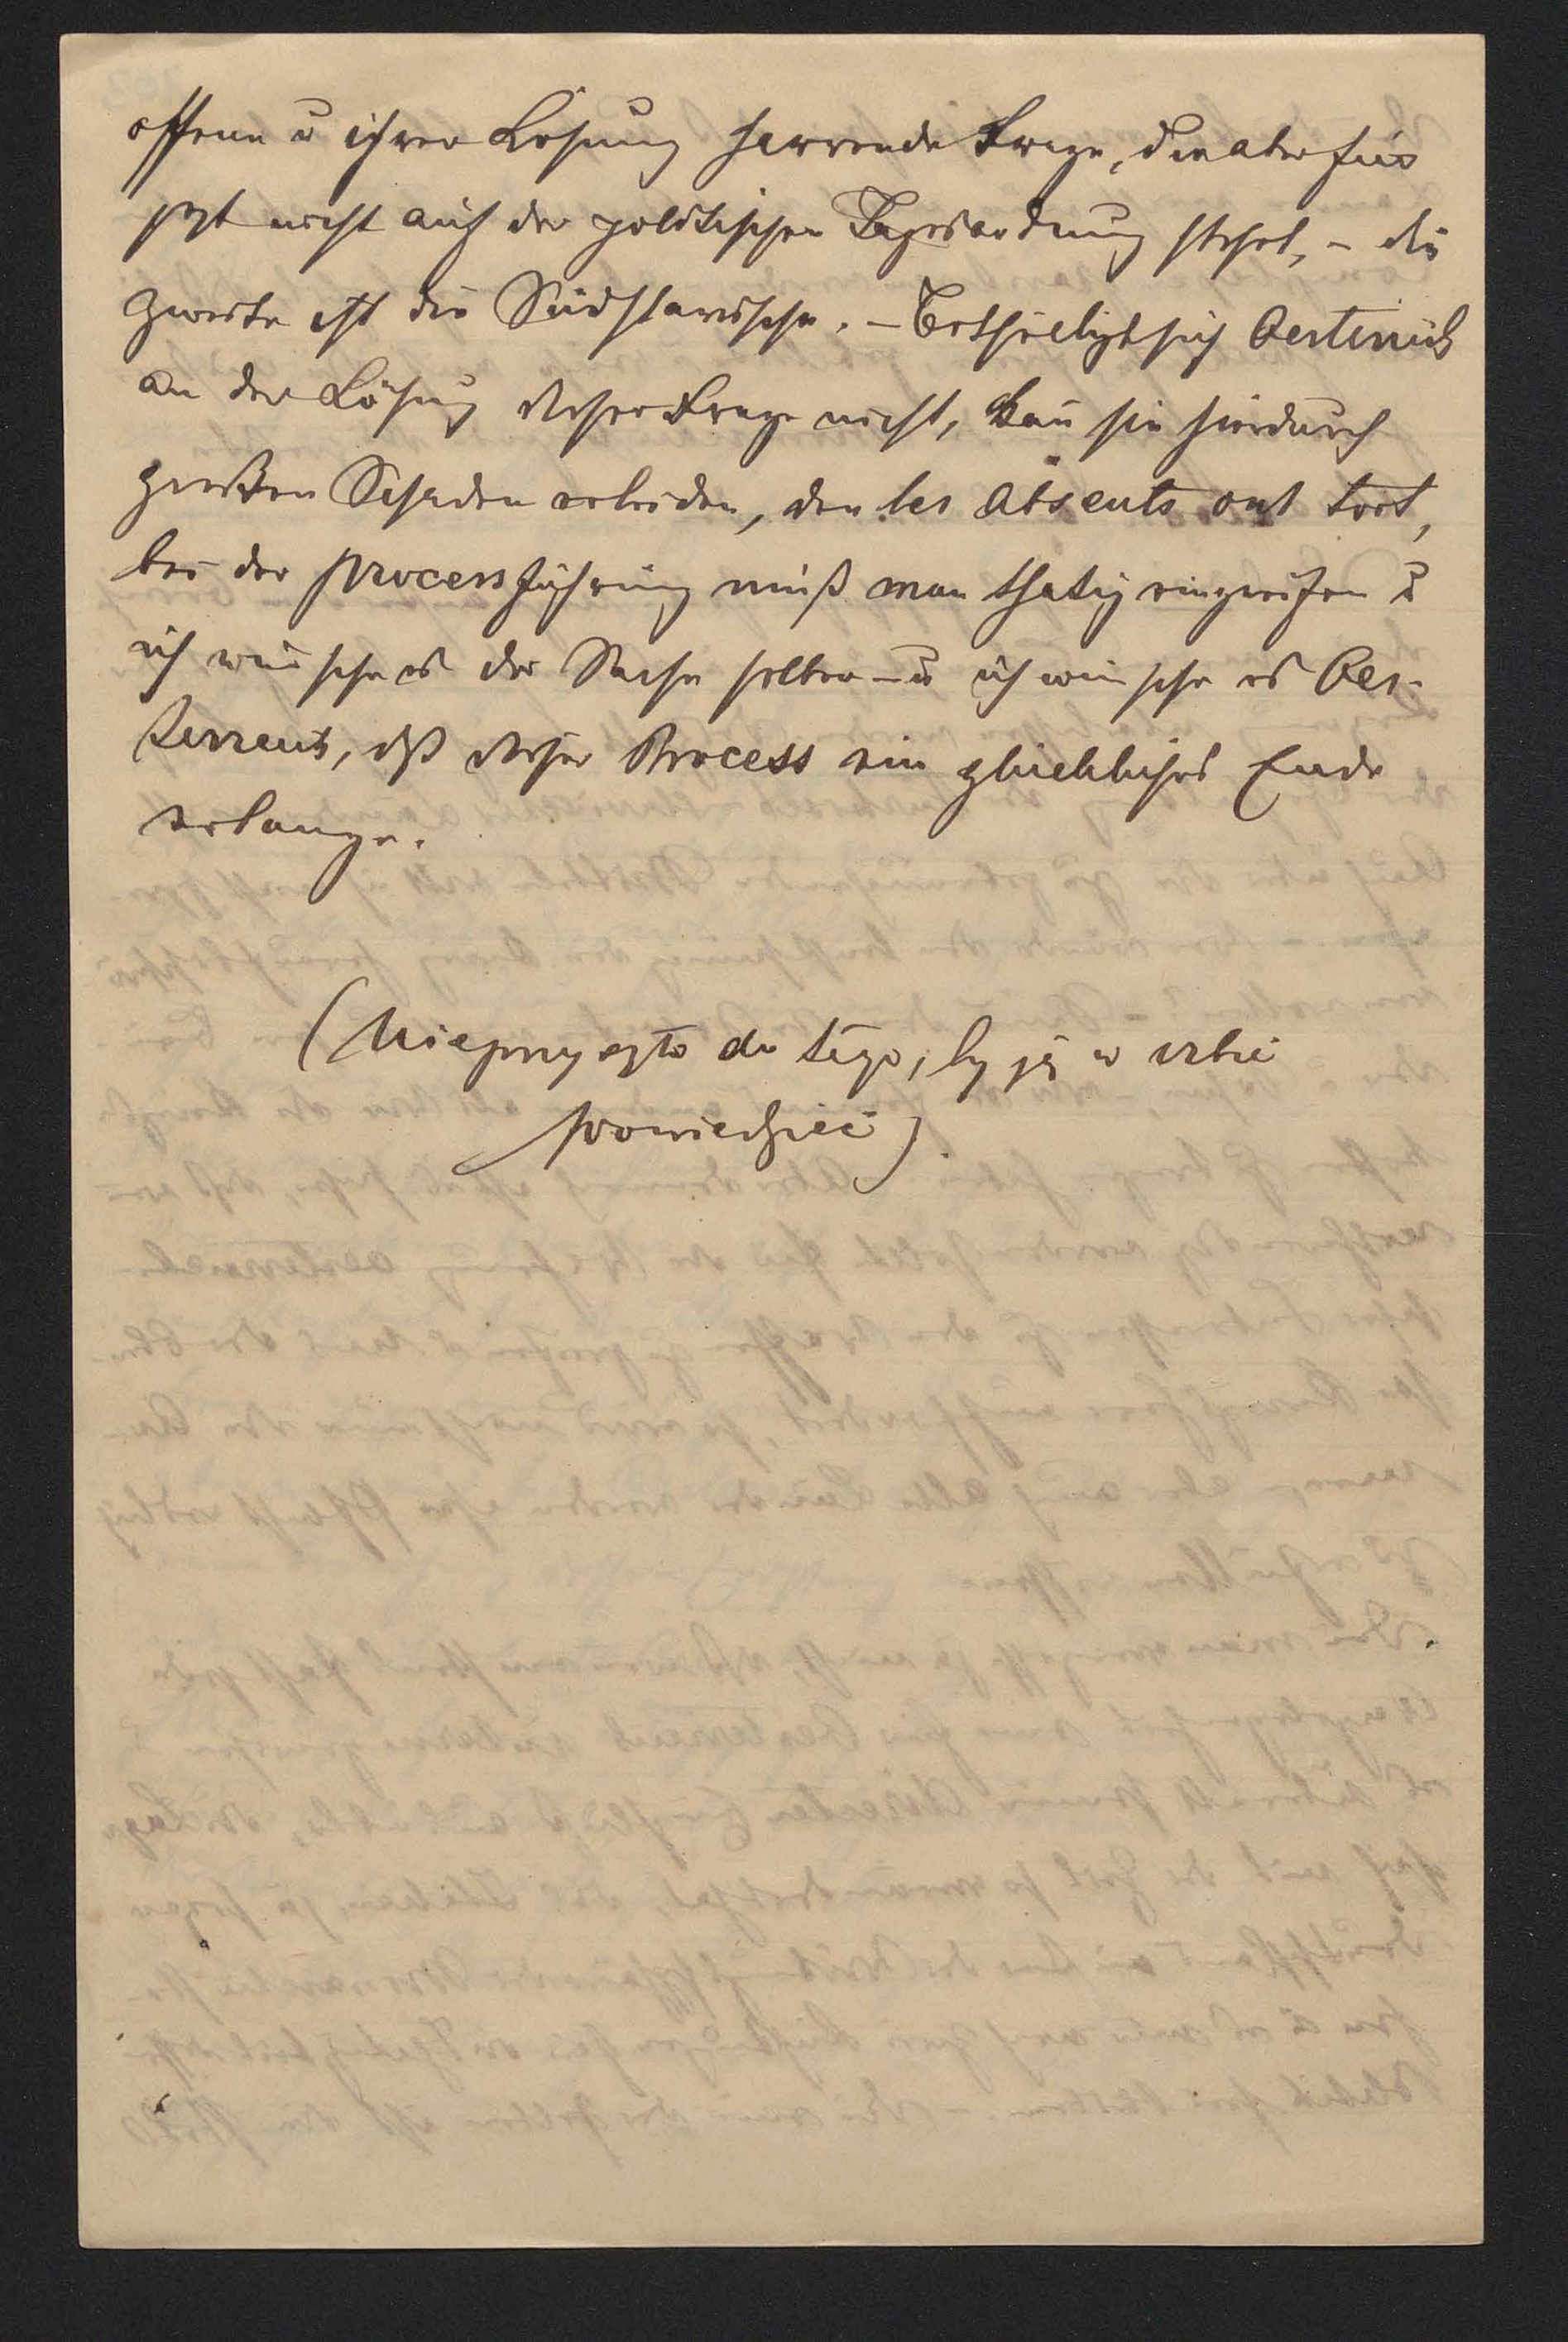 offene u ihrer Lösung harrende Frage, die aber für
jetzt nicht auf der politischen Tagesordnung steht, – die
zweite ist die Südslavische. – Betheiligt sich Oesterreich
an der Lösung dieser Frage nicht, kañ sie hiedurch
großen Schaden erleiden, den les absents ont tort,
bei der Processführung muß man thatig eingreifen u
ich wünsche es der Sache selber – u ich wünsche es Oes-
terreich, dß dieser Process ein glückliches Ende
erlange.
(Nie przyszło do tego, by ją w izbie
powiedzieć).